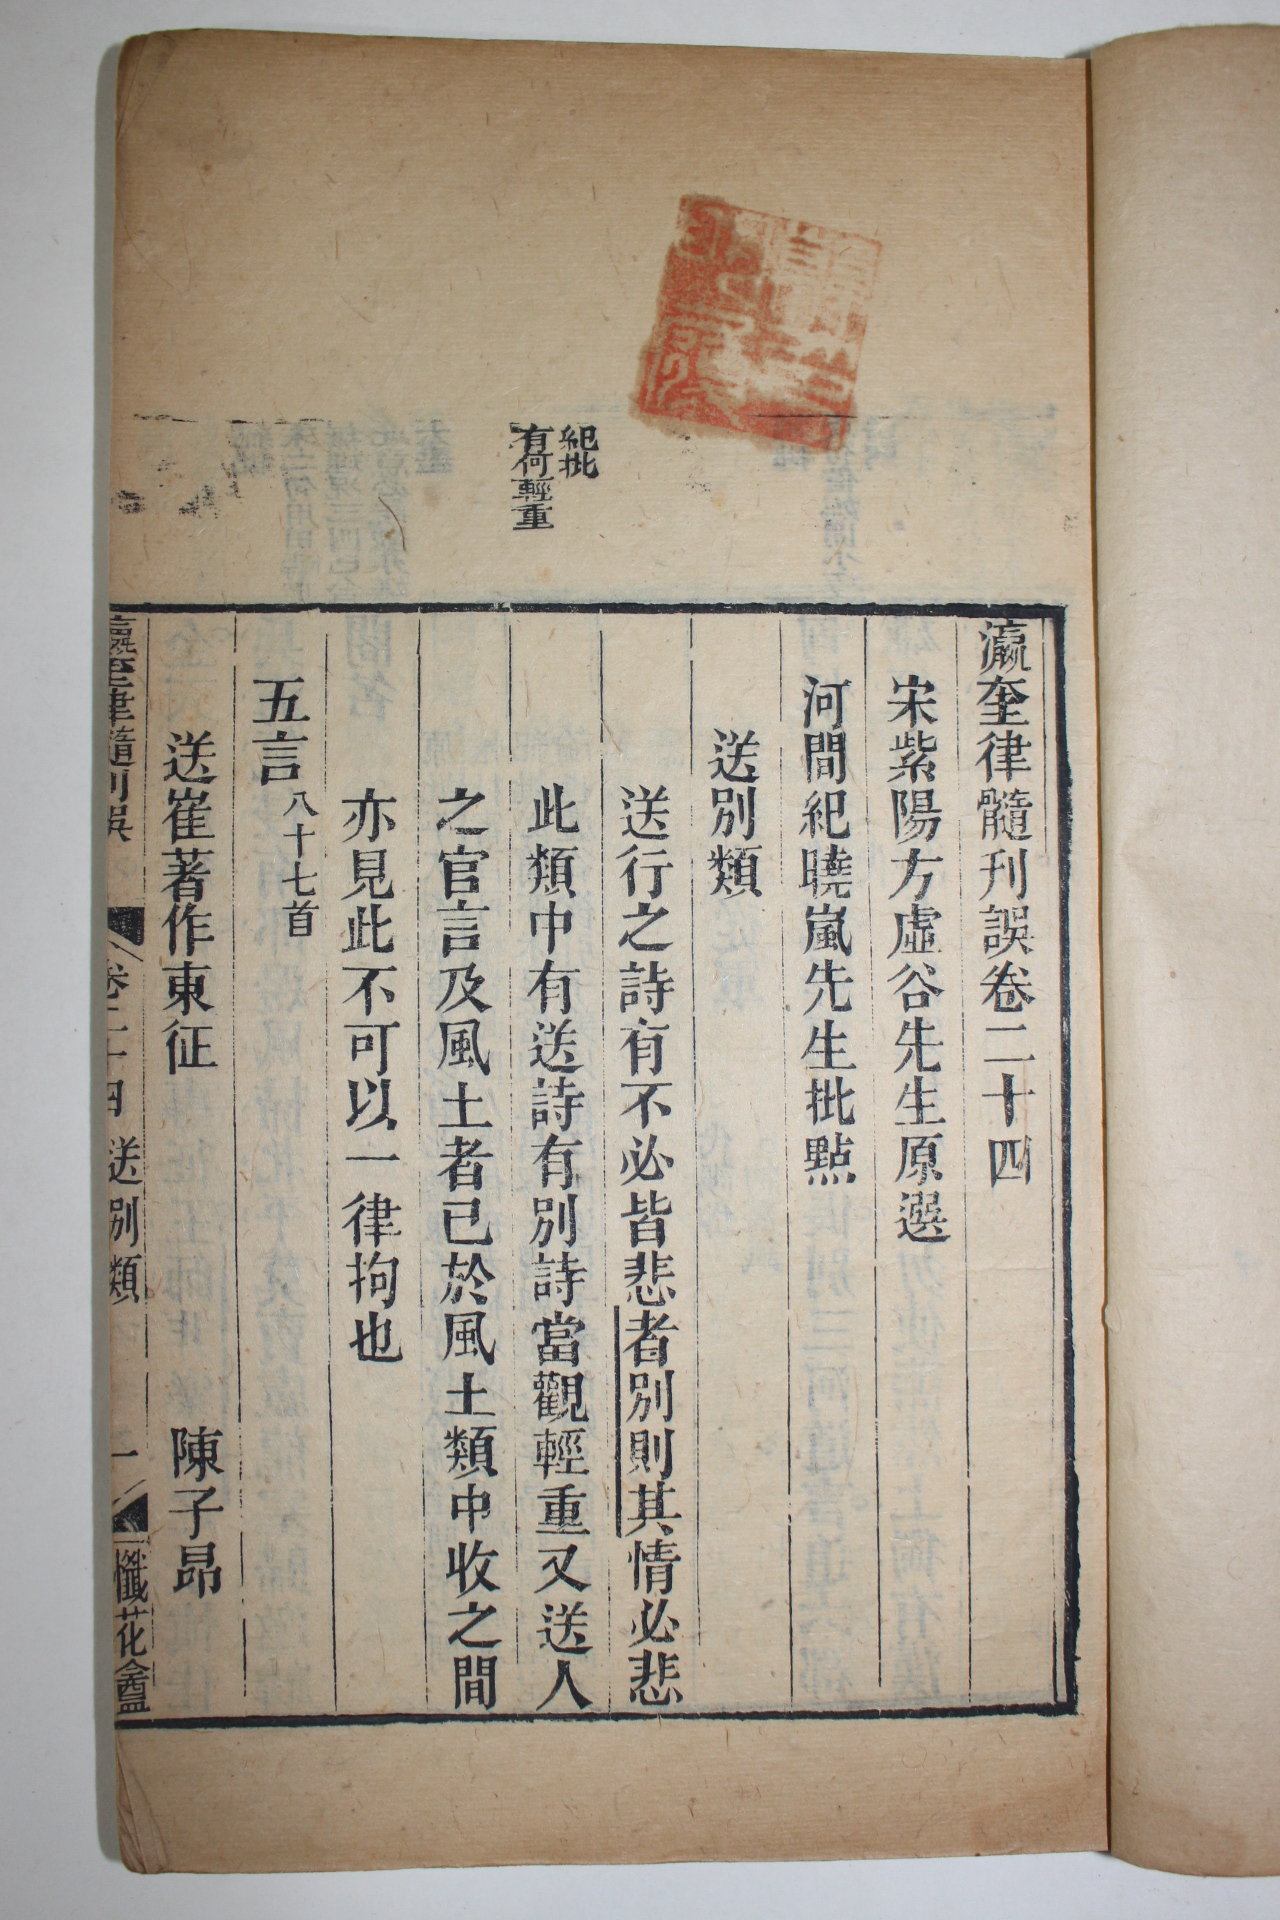 紀批
有何輕重
瀛奎律髓刊誤卷二十四
宋紫陽方虛谷先生原選
河間紀曉嵐先生批點
送別類
送行之詩有不必皆悲者別則其情必悲
此類中有送詩有別詩當觀輕重又送人
之官言及風土者已於風土類中收之間
亦見此不可以一律拘也
五言八十七首
送崔著作東征 陳子昂
瀛奎律髓刊誤 卷二十四 送別類 一 懺花盦